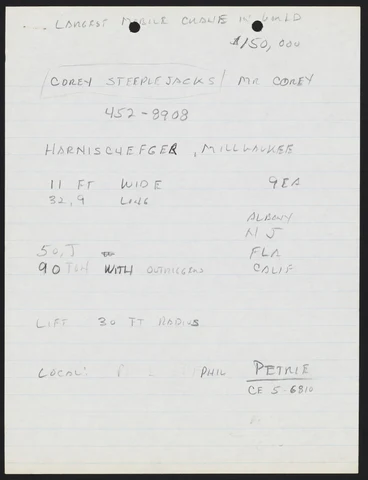 ... LARGEST MOBILE CRANE IN WORLD
$150,000
/COREY STEEPLEJACKS/ MR COREY
452-8908
HARNISCHEFGER, MILLWAUKEE
11 FT WIDE 9EA
32,9 LONG
ALBANY
N J
50,T FLA
90 TON WITH OUTRIGGERS CALIF
LIFT 30 FT RADIUS
LOCAL: PHIL PETRIE
CE 5-6810